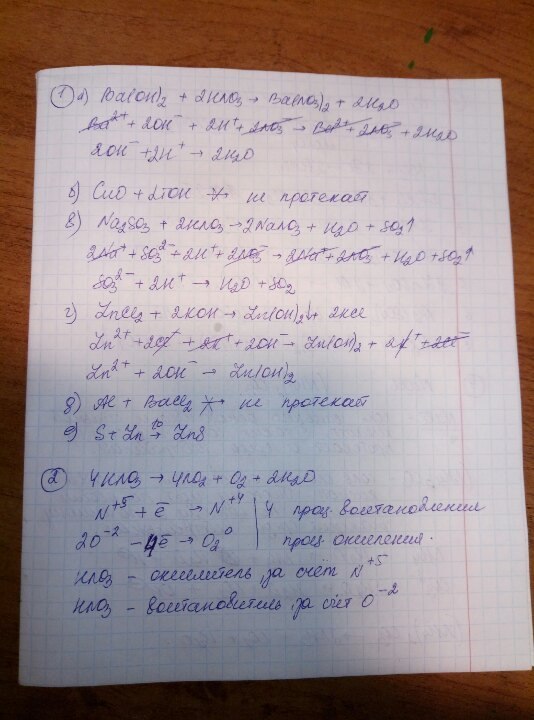 ① а) Ba(OH)2 + 2HNO3 → Ba(NO3)2 + 2H2O
Ba²⁺ + 2OH⁻ + 2H⁺ + 2NO3⁻ → Ba²⁺ + 2NO3⁻ + 2H2O
2OH⁻ + 2H⁺ → 2H2O
б) CuO + LiOH ↛ не протекает
в) Na2SO3 + 2HNO3 → 2NaNO3 + H2O + SO2↑
2Na⁺ + SO3²⁻ + 2H⁺ + 2NO3⁻ → 2Na⁺ + 2NO3⁻ + H2O + SO2↑
SO3²⁻ + 2H⁺ → H2O + SO2
г) ZnCl2 + 2KOH → Zn(OH)2↓ + 2KCl
Zn²⁺ + 2Cl⁻ + 2K⁺ + 2OH⁻ → Zn(OH)2 + 2K⁺ + 2Cl⁻
Zn²⁺ + 2OH⁻ → Zn(OH)2
д) Al + BaCl2 ↛ не протекает
е) S + Zn →t° ZnS
② 4HNO3 → 4NO2 + O2 + 2H2O
N⁺⁵ + ē → N⁺⁴ | 4 проц. восстановления
2O⁻² − 4ē → O2⁰ | проц. окисления.
HNO3 – окислитель за счёт N⁺⁵
HNO3 – восстановитель за счёт O⁻²